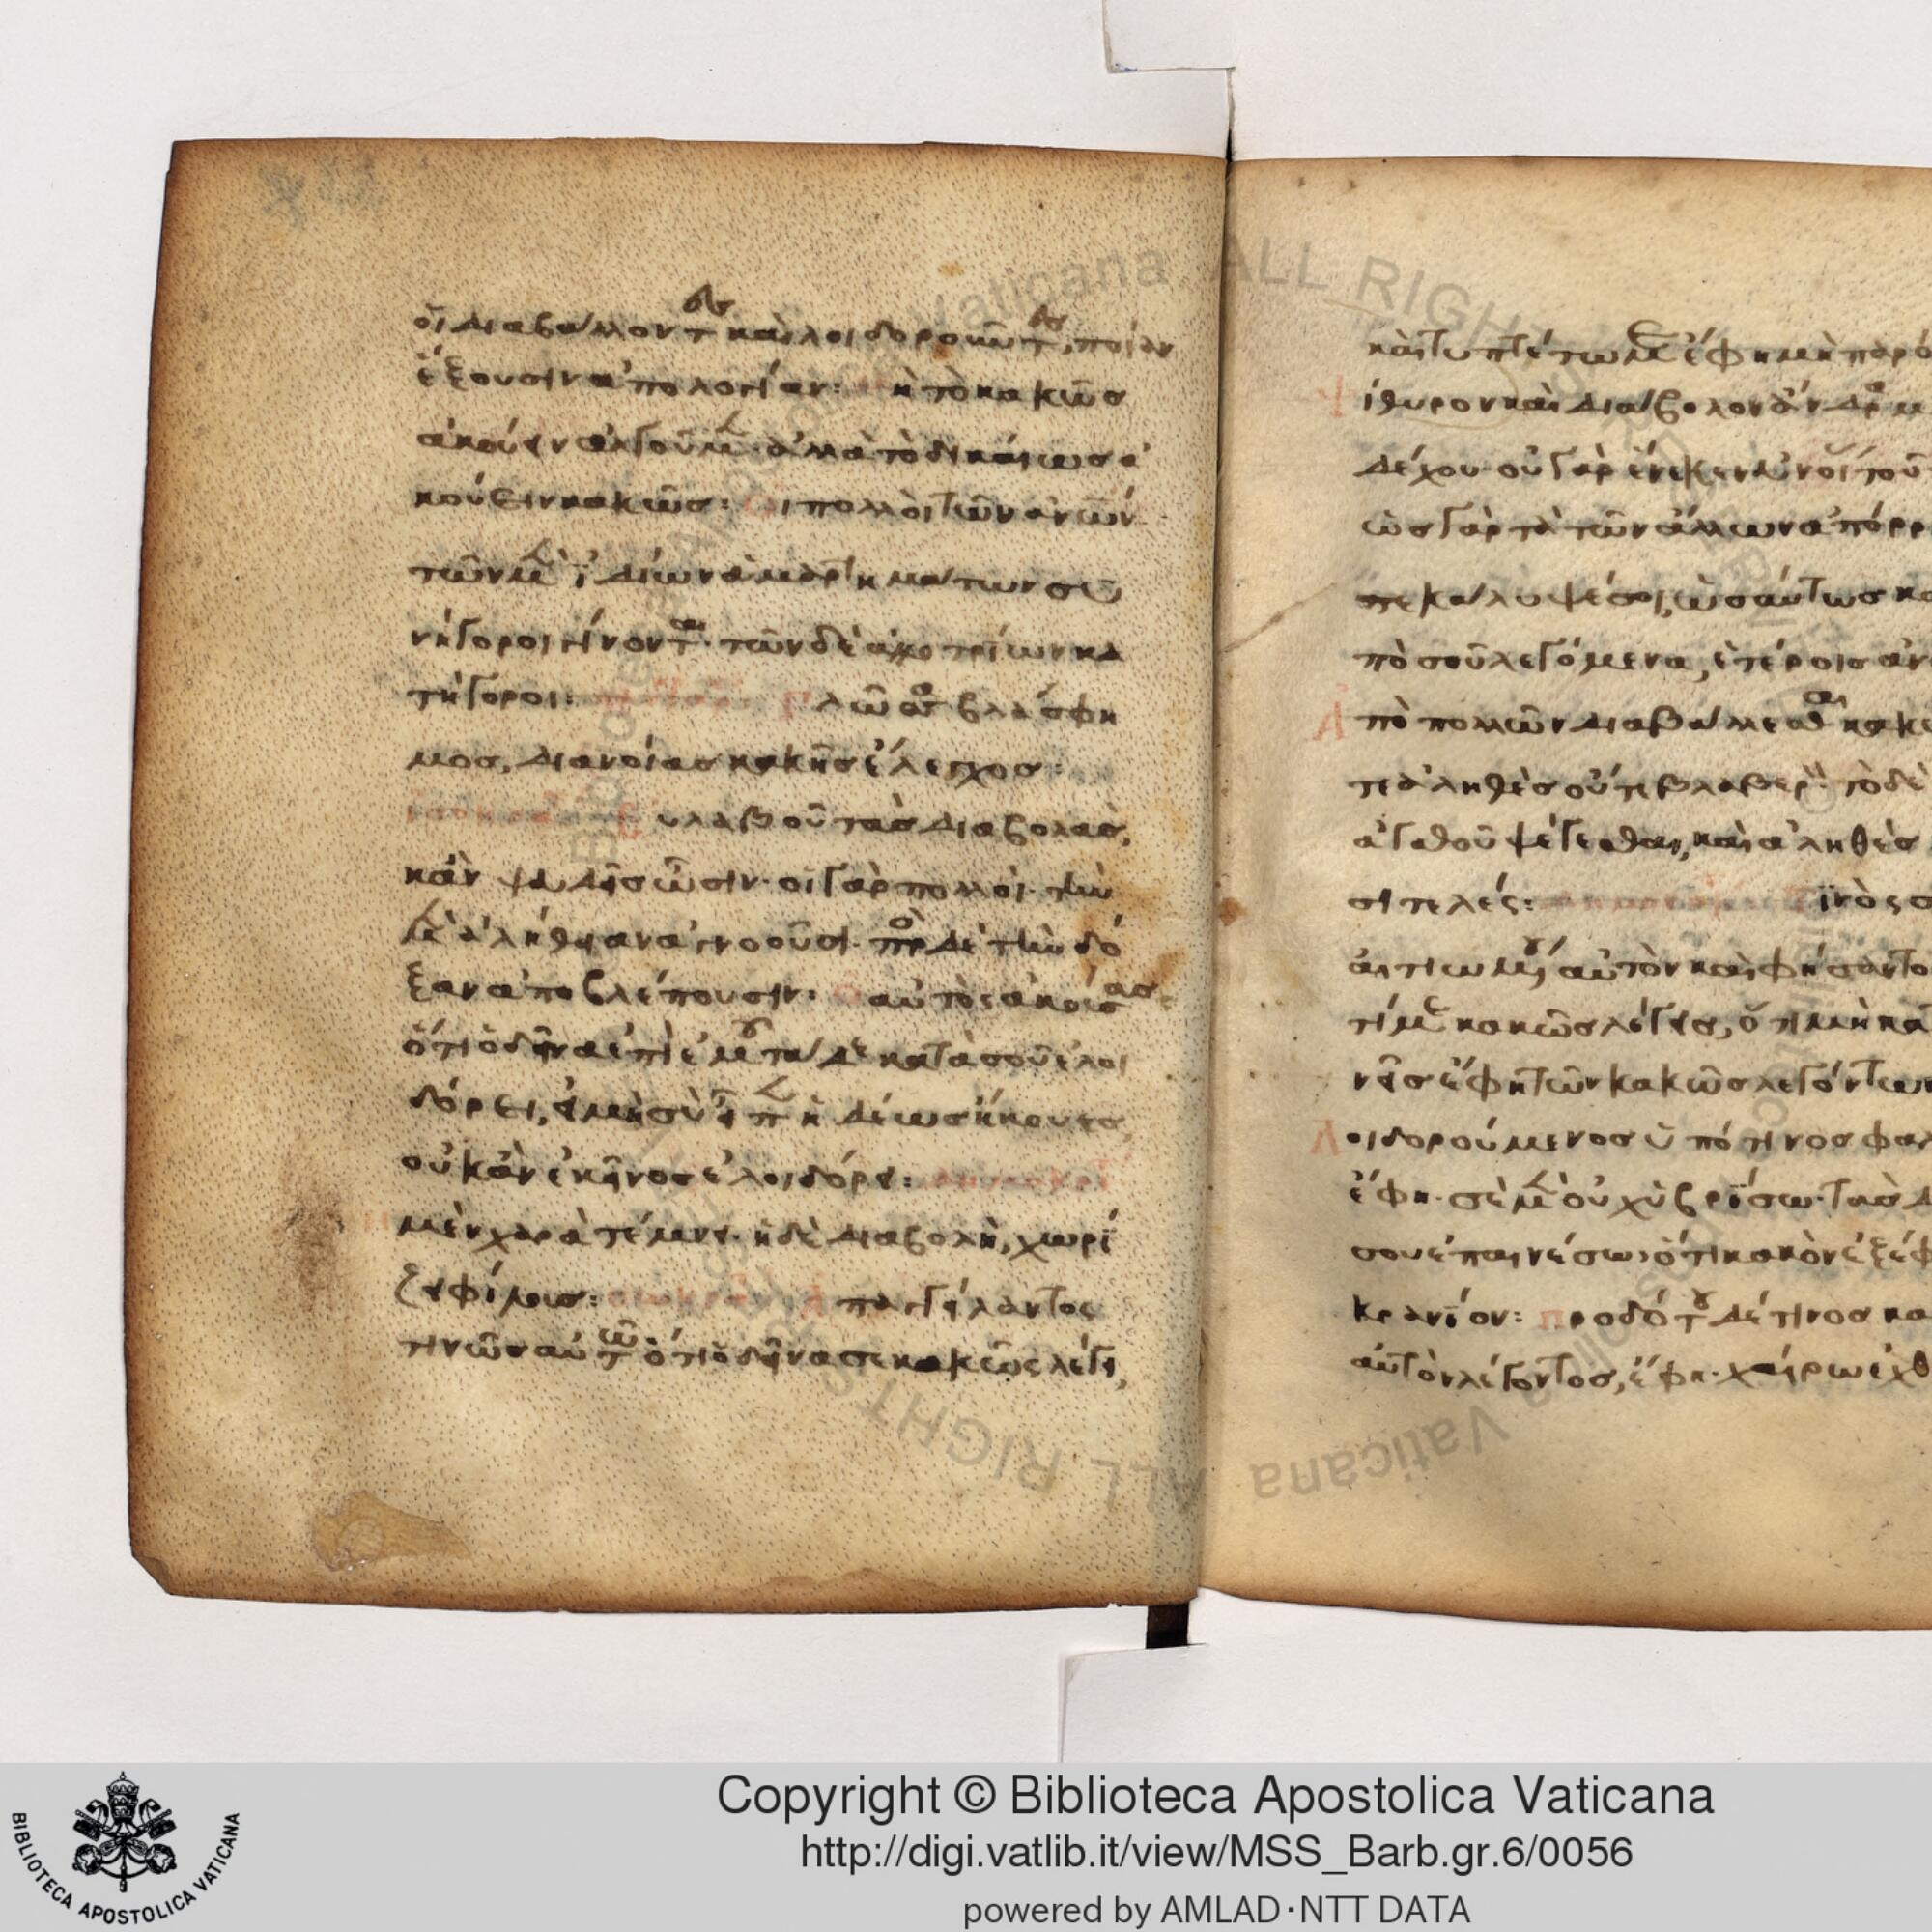 οἱ διαβάλλοντες καὶ λοιδοροῦντες, ποίαν
ἕξουσιν ἀπολογίαν: ἢ τὸ κακῶς
ἀκούειν
κούειν κακῶς: Οἱ πολλοὶ τῶν ἀνων
τῶν μὲν ἰδίων ἁμαρτημάτων συ
νήγοροι γίνονται· τῶν δὲ ἀλλοτρίων κα
τήγοροι: Γλῶττα βλάσφη
μος, διανοίας κακῆς ἔλεγχος:
Εὐλαβοῦ τὰς διαβολὰς,
κἂν ψευδεῖς ὦσιν· οἱ γὰρ πολλοὶ τὴν
μὲν ἀλήθειαν ἀγνοοῦσι· πρὸς δὲ τὴν δό
ξαν ἀποβλέπουσιν: αὐτὸς ἀκούσας
ὅτι ὁ δεῖνα ἐπὶ ἐμοῦ τάδε κατὰ σοῦ ἐλοι
δόρει, εἰ μὴ σὺ ἡδέως ἤκουες,
οὐκ ἂν ἐκεῖνος ἐλοιδόρει:
μὲν χαρὰ τέμνει· ἡ δὲ διαβολὴ, χωρί
ζει φίλους: Ἀπαγγείλαντος
τινῶς αὐτῶ ὅτι ὁ δεῖνα σε κακῶς λέγει,
καὶ τυπτέτω με ἔφη μὴ παρό
ψίθυρον καὶ διάβολον ἄνδρα μ
δέχου· οὐ γὰρ ἕνεκεν εὐνοί τοῦ
ὡς γὰρ τὰ τῶν ἄλλων ἀπόρρ
πεκάλυψέ σοι, ὡσαύτως κα
πὸ σοῦ λεγόμενα, ἑτέροις ἀν
πὸ πολλῶν διαβάλλεσθαι κακ
τε ἀληθὲς οὔτε βλαβερὸν· τὸ δὲ
ἀγαθοῦ ψέγεσθαι, καὶ ἀληθὲς
σιτελές: τινὸς
αἰτιωμένου αὐτὸν καὶ φήσαντο
τί με κακῶς λέγεις, ὅτι μὴ κα
νεῖς ἔφη τῶν κακῶς λεγόντων
Λοιδορούμενος ὑπό τινος φαλ
ἔφη· σὲ μὲν οὐχ ὑβρίσω· τὰς δ
σου ἐπαινέσω, ὅτι κακὸν ἐξέφ
κρανίον: Προδότου δέ τινος κα
αὐτὸν λέγοντος, ἔφη· χαίρω ἐχθ
Copyright © Biblioteca Apostolica Vaticana
http://digi.vatlib.it/view/MSS_Barb.gr.6/0056
powered by AMLAD·NTT DATA
BIBLIOTECA APOSTOLICA VATICANA